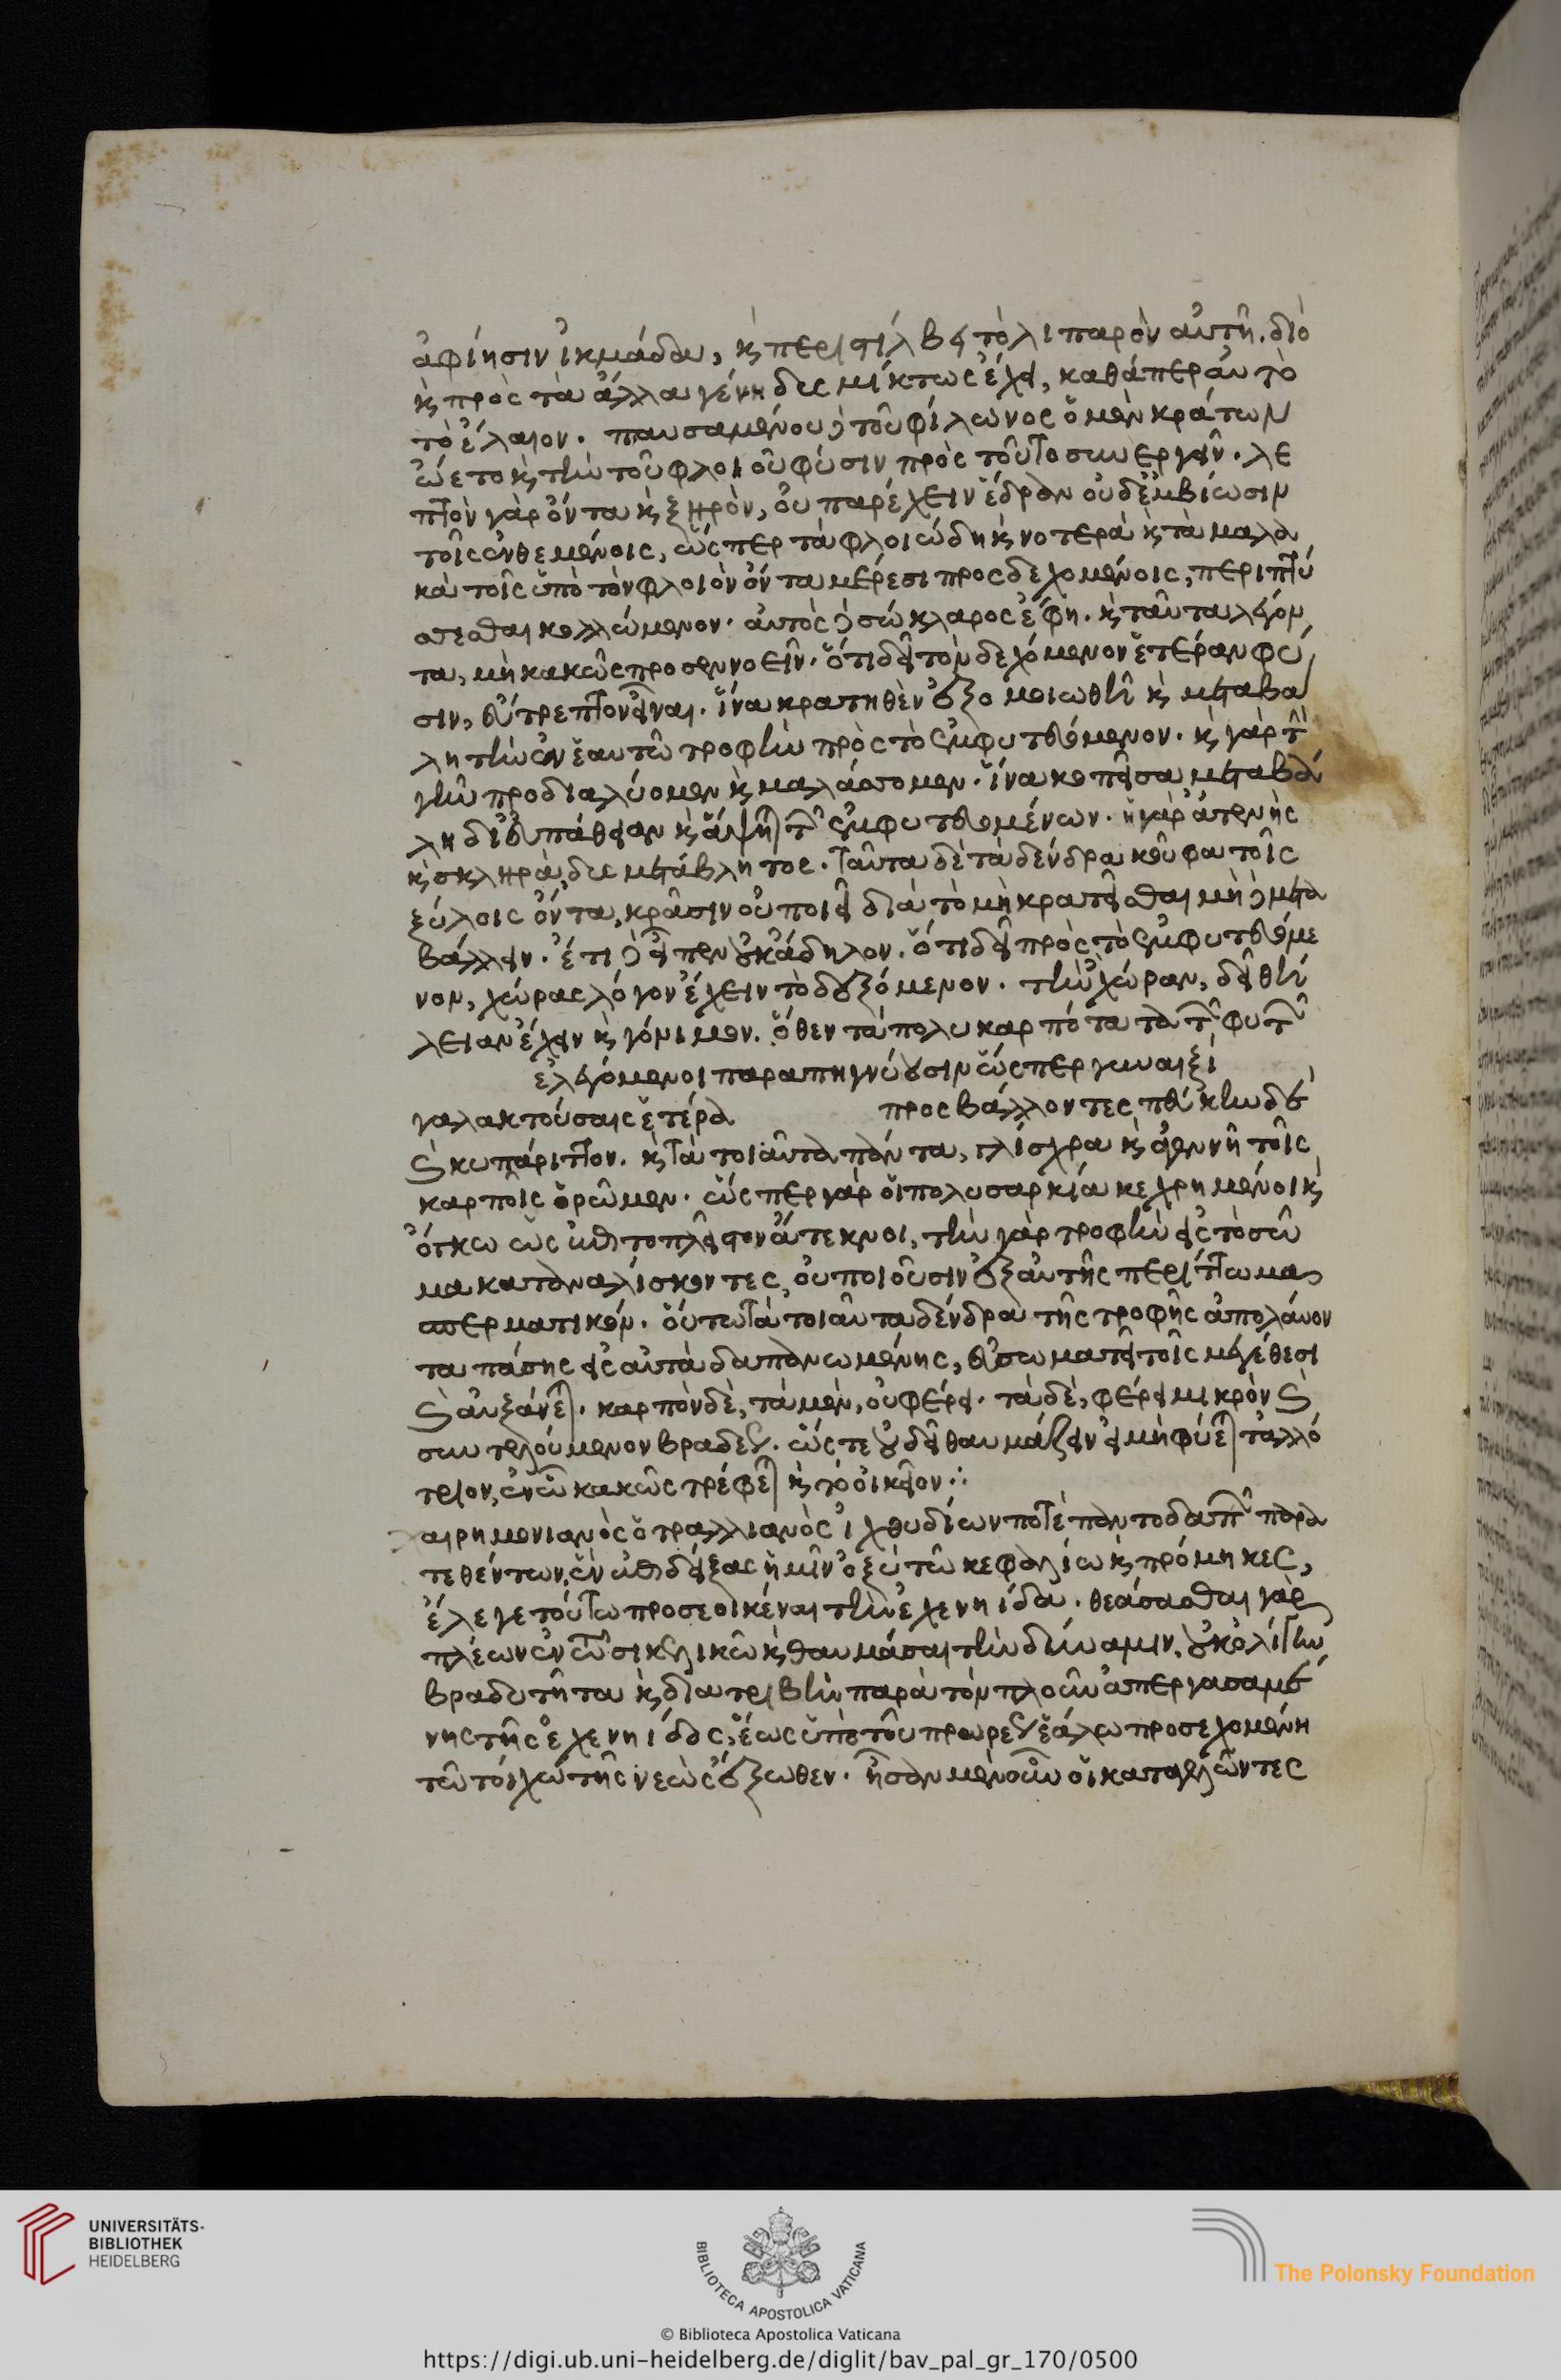 ἀφίησιν ἰκμάδα, καὶ περιστίλβει τὸ λιπαρὸν αὐτῆ. διὸ
καὶ πρὸς τὰ ἄλλα γένη δυσμίκτως ἔχει, καθάπερ αὐτὸ
τὸ ἔλαιον. παυσαμένου δὲ τοῦ φίλωνος ὁ μὲν κράτων
ὤετο καὶ τὴν τοῦ φλοιοῦ φύσιν πρὸς τοῦτο συνεργεῖν. λε
πτὸν γὰρ ὄντα καὶ ξηρὸν, οὐ παρέχειν ἕδραν οὐδ' ἐμβίωσιν
τοῖς ἐνθεμένοις, ὥσπερ τὰ φλοιώδη καὶ νοτερὰ καὶ τὰ μαλα
κὰ τοῖς ὑπὸ τὸν φλοιὸν ὄντα μέρεσι προσδεχομένοις, περιπτύ
σσεσθαι κολλώμενον. αὐτὸς δὲ σώκλαρος ἔφη. καὶ ταῦτα λέγον
τα, μὴ κακῶς προσεννοεῖν. ὅτι δεῖ τὸν δεχόμενον ἑτέραν φύ
σιν, εὔτρεπτον εἶναι. ἵνα κρατηθὲν ἐξομοιωθῆ καὶ μεταβα
λη τὴν ἐν ἑαυτῶ τροφὴν πρὸς τὸ ἐμφυτευόμενον. καὶ γὰρ τὴν
γῆν προδιαλύομεν καὶ μαλάσσομεν. ἵνα κοπεῖσα μεταβά
λη δι' εὐπάθειαν καὶ ἅψηται τῶν ἐμφυτευομένων. ἡ γὰρ ἀτενὴς
καὶ σκληρὰ, δυσμετάβλητος. ταῦτα δὲ τὰ δένδρα κοῦφα τοῖς
ξύλοις ὄντα, κρᾶσιν οὐ ποιεῖ διὰ τὸ μὴ κρατεῖσθαι μὴ δὲ μετα
βάλλειν. ἔτι δὲ εἶπεν οὐκ ἄδηλον. ὅτι δεῖ πρὸς τὸ ἐμφυτευόμε
νον, χώρας λόγον ἔχειν τὸ δεξόμενον. τὴν χώραν, δεῖ θή
λειαν ἔχειν καὶ γόνιμον. ὅθεν τὰ πολυκαρπότατα τῶν φυτῶν
ἐλεγόμενοι παραπηγνύουσιν ὥσπερ γυναιξὶ
γαλακτούσαις ἕτερα προσβάλλοντες πεύκην δὲ
καὶ κυπάριττον. καὶ τὰ τοιαῦτα πάντα, γλίσχρα καὶ ἀγεννῆ τοῖς
καρποῖς ὁρῶμεν. ὥσπερ γὰρ οἱ πολυσαρκία κεχρημένοι καὶ
ὄγκω ὡς ἐπὶ τὸ πλεῖστον ἄτεκνοι, τὴν γὰρ τροφὴν εἰς τὸ σῶ
μα καταναλίσκοντες, οὐ ποιοῦσιν ἐξ αὐτῆς περίττωμα
σπερματικόν. οὕτω τὰ τοιαῦτα δένδρα τῆς τροφῆς ἀπολαύον
τα πάσης εἰς αὐτὰ δαπανωμένης, εὐσωματεῖ τοῖς μεγέθεσι
καὶ αὐξάνεται. καρπὸν δὲ, τὰ μὲν, οὐ φέρει. τὰ δὲ, φέρει μικρὸν καὶ
συντελούμενον βραδέως. ὥστε οὐ δεῖ θαυμάζειν εἰ μὴ φύεται τἀλλό
τριον, ἐν ὧ κακῶς τρέφεται καὶ τὸ οἰκεῖον ∴
αιρημονιανὸς ὁ τραλλιανὸς ἰχθυδίων ποτὲ παντοδαπῶν παρα
τεθέντων, ἓν ἐπιδείξας ἡμῖν ὀξὺ τῶ κεφαλίω καὶ πρόμηκες,
ἔλεγε τούτω προσεοικέναι τὴν ἐχενηίδα. θεάσασθαι γὰρ
πλέων ἐν τῶ σικελικῶ καὶ θαυμάσαι τὴν δύναμιν, οὐκ ὀλίγην
βραδυτῆτα καὶ διατριβὴν παρὰ τὸν πλοῦν ἀπεργασαμέ
νης τῆς ἐχενηίδος, ἕως ὑπὸ τοῦ πρωρέως ἑάλω προσεχομένη
τῶ τοίχω τῆς νεὼς ἔξωθεν. ἦσαν μὲν οὖν οἱ καταγελῶντες
UNIVERSITÄTS-
BIBLIOTHEK
HEIDELBERG
BIBLIOTECA APOSTOLICA VATICANA
The Polonsky Foundation
© Biblioteca Apostolica Vaticana
https://digi.ub.uni-heidelberg.de/diglit/bav_pal_gr_170/0500